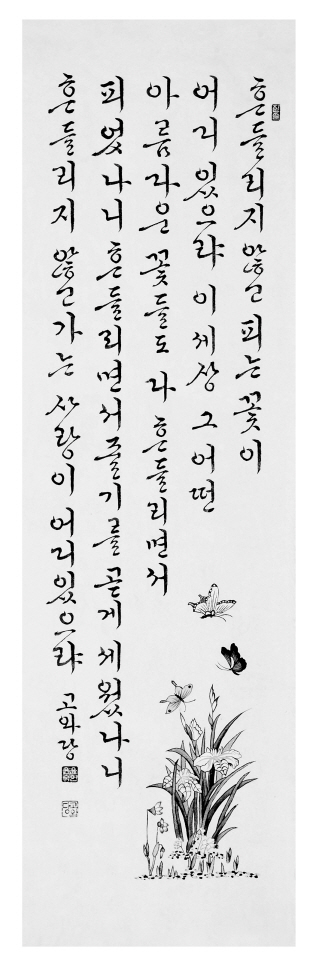 흔들리지 않고 피는 꽃이
어디 있으랴 이 세상 그 어떤
아름다운 꽃들도 다 흔들리면서
피었나니 흔들리면서 줄기를 곧게 세웠나니
흔들리지 않고 가는 사랑이 어디 있으랴
고와당